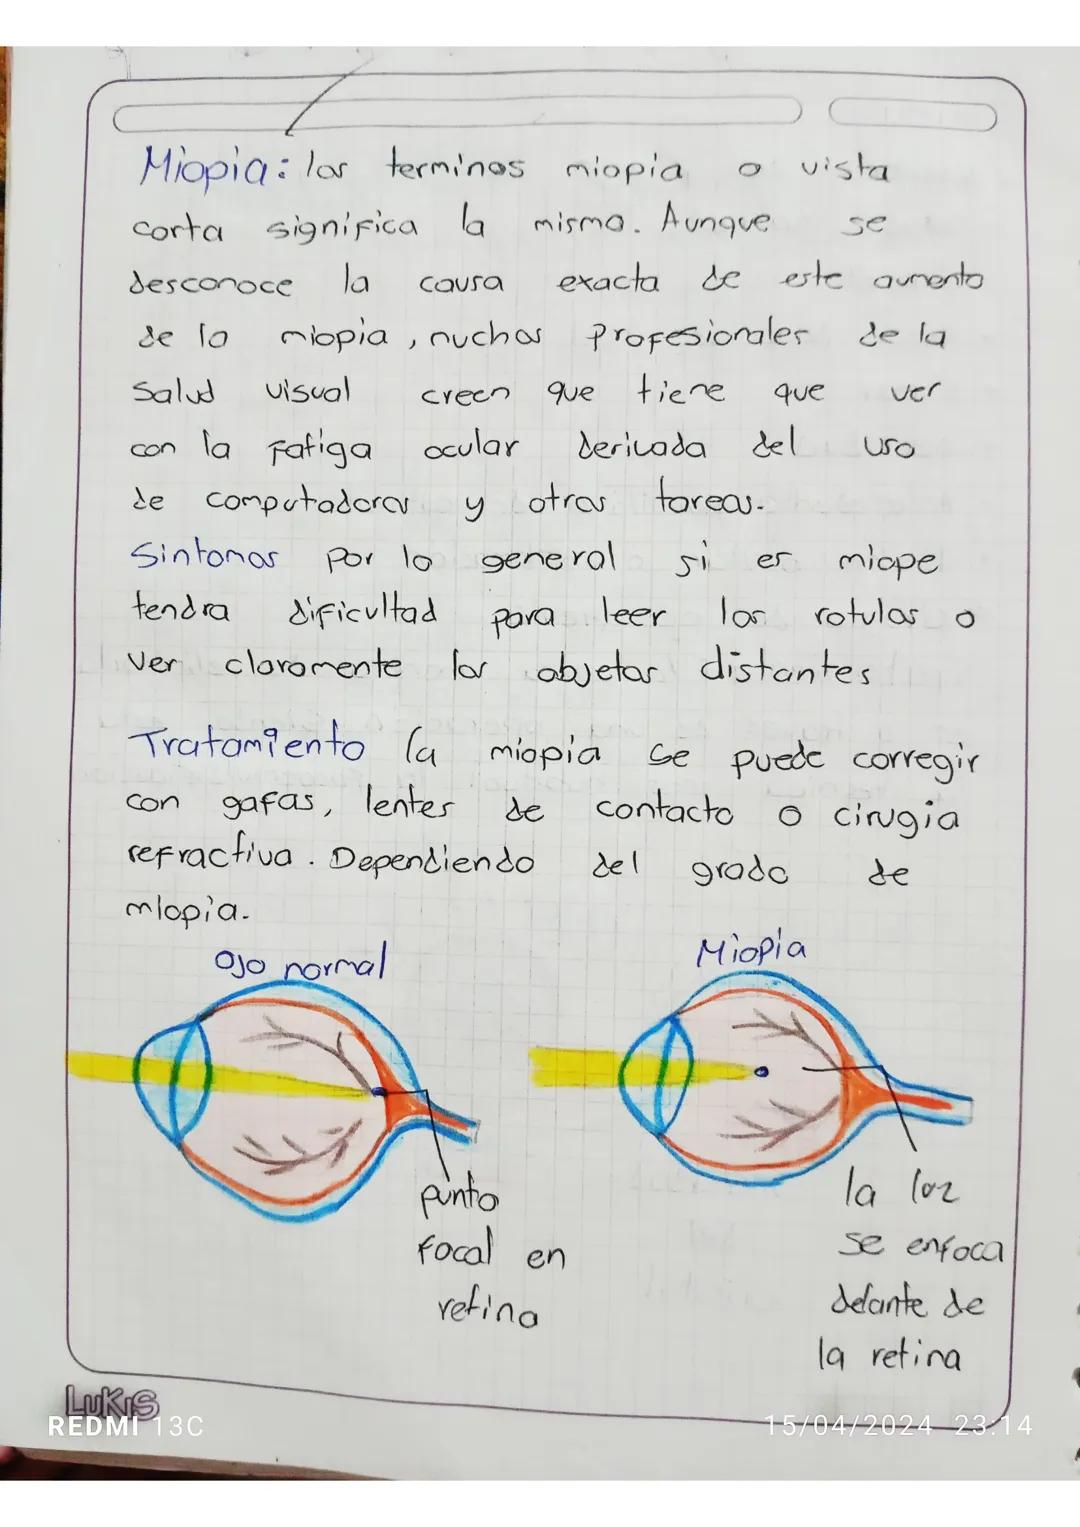 Miopia: los terminos miopia o vista
corta significa lo mismo. Aunque se
desconoce la causa exacta de este aumento
de la miopia, nuchos profesionales de la
salud visual creen que tiene que ver
con la fatiga ocular derivada del uso
de computadoras y otras tareas.
Sintomas por lo general si es miope
tendra dificultad para leer los rotulos o
ver claramente los objetos distantes
Tratamiento la miopia se puede corregir
con gafas, lentes de contacto o cirugia
refractiva. Dependiendo del grado de
miopia.
Ojo normal
Miopia
punto
focal en
retina
la luz
se enfoca
delante de
la retina
LUKIS
REDMI 13C
15/04/2024 23:14